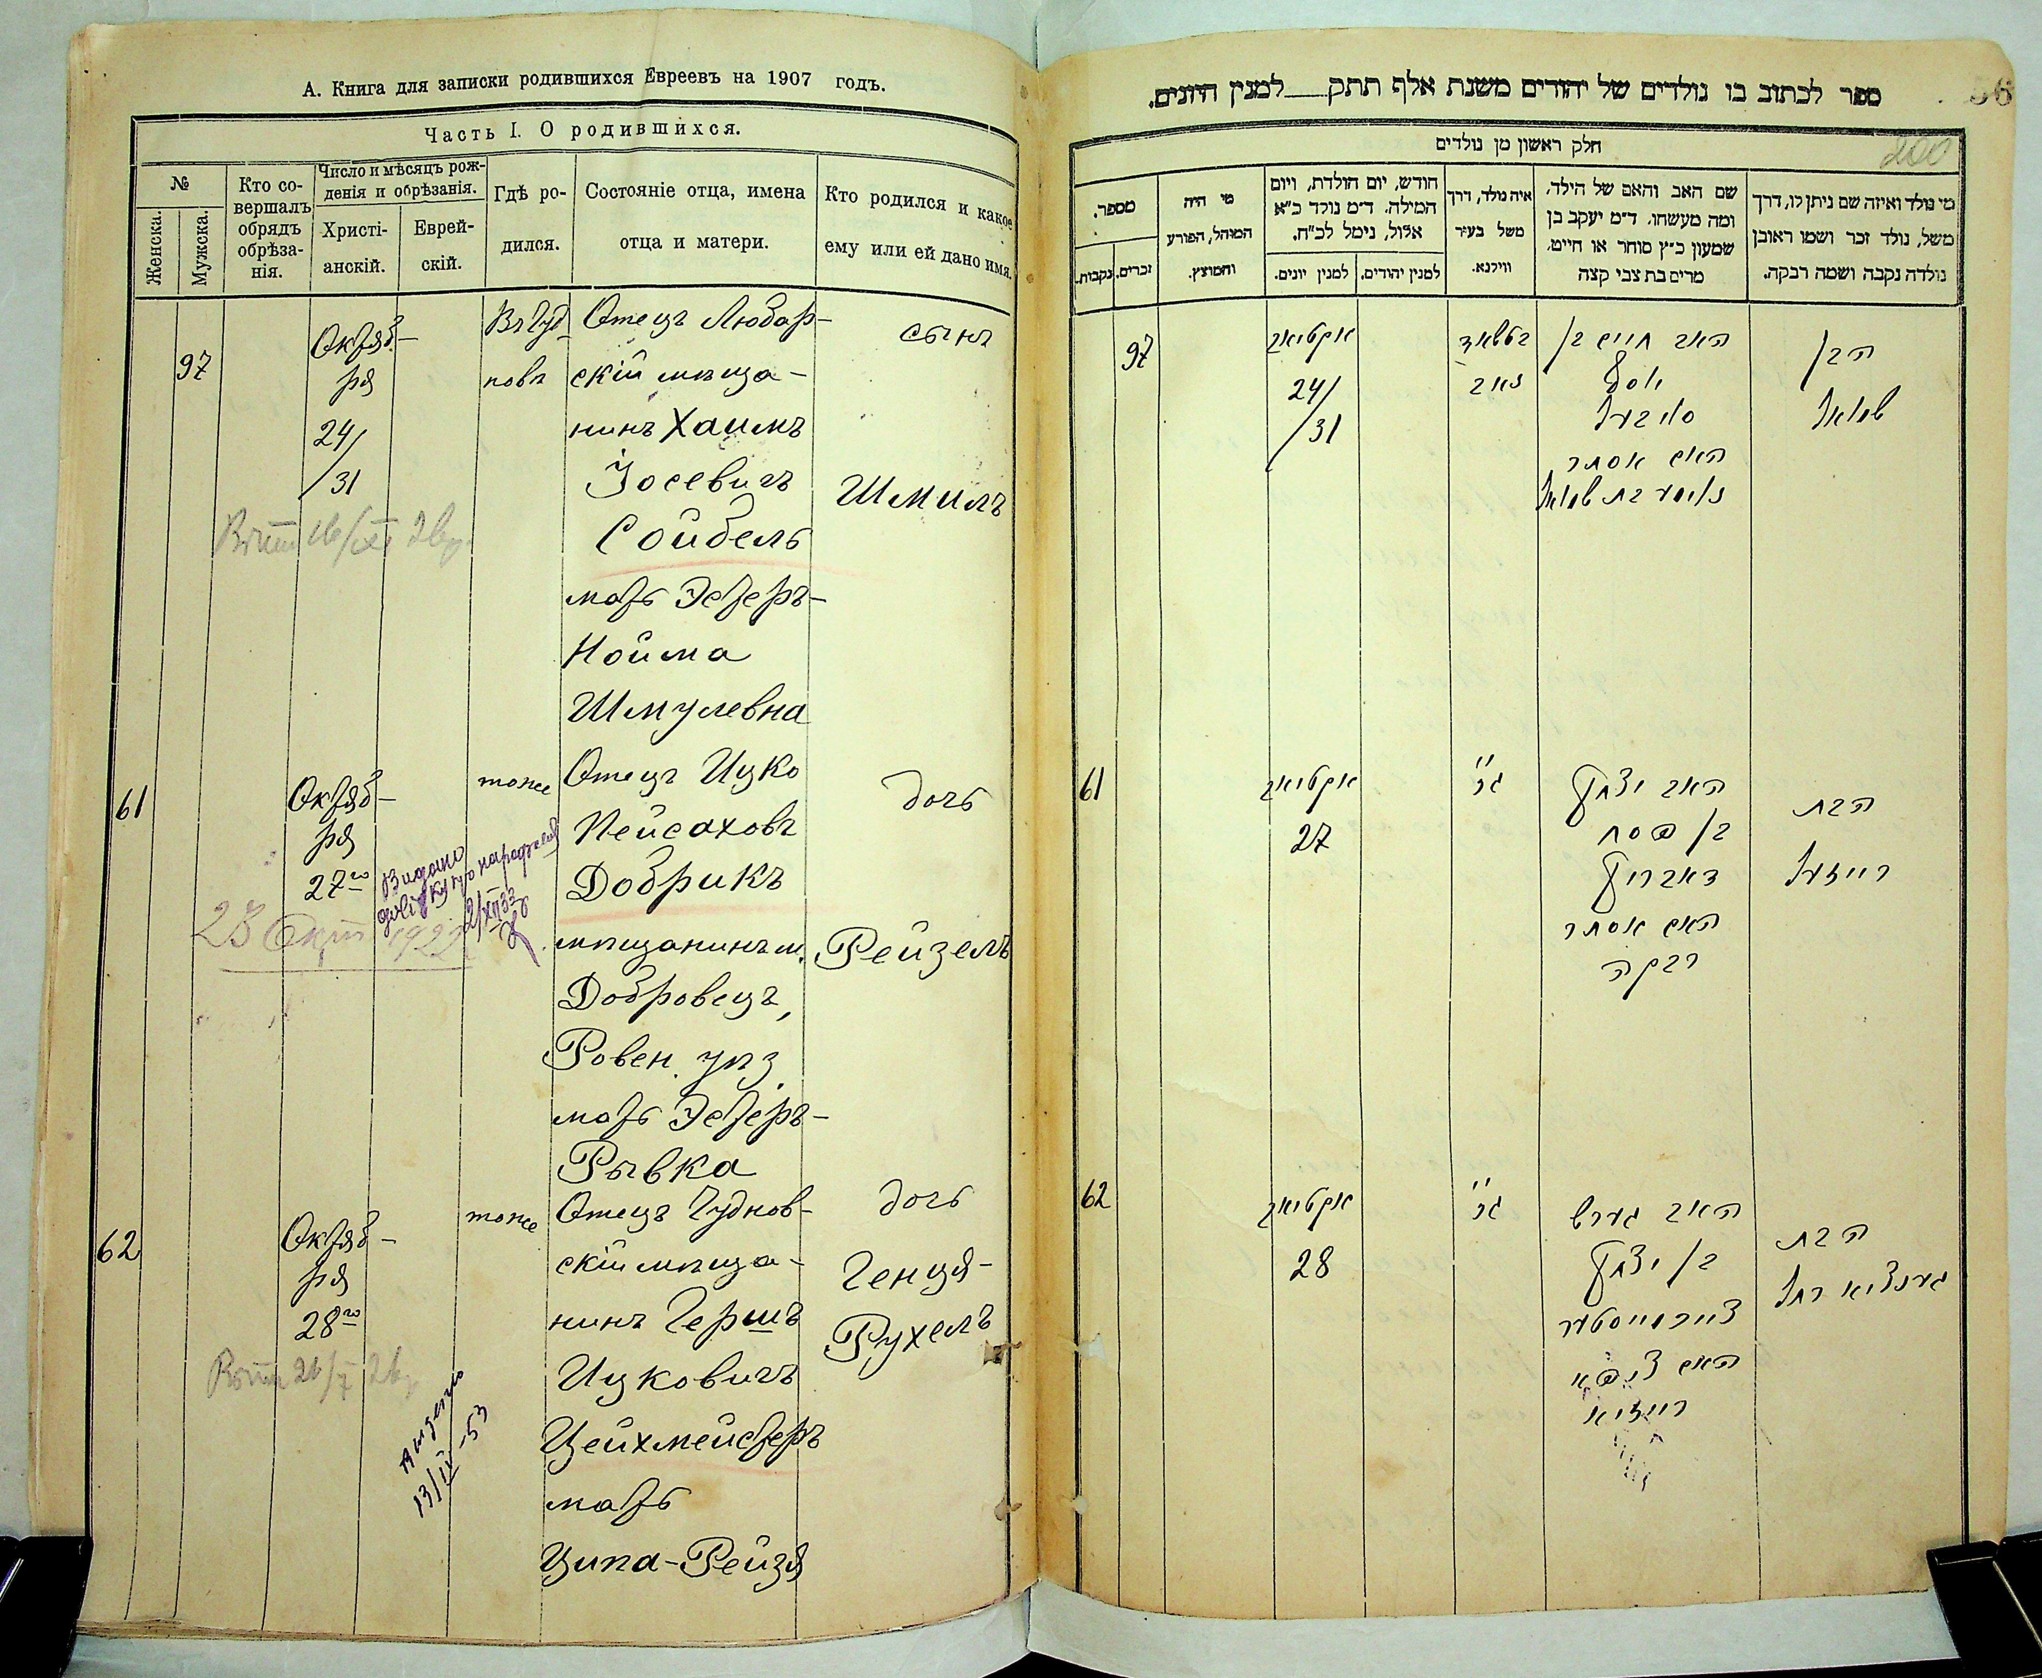 А. Книга для записки родившихся Евреевъ на 1907 годъ.
Часть I. О родившихся.
№
Женска.
Мужска.
Кто со-
вершалъ
обрядъ
обрѣза-
нія.
Число и мѣсяцъ рож-
денія и обрѣзанія.
Христі-
анскій.
Еврей-
скій.
Гдѣ ро-
дился.
Состояніе отца, имена
отца и матери.
Кто родился и какое
ему или ей дано имя.
97
Октяб-
ря
24/
/31
Въ Чуд
новѣ
Отецъ Любар-
скій мѣща-
нинъ Хаимъ
Іосевичъ
Сойбель
мать Эстеръ-
Нойма
Шмулевна
сынъ
Шмилъ
61
Октяб-
ря
27го
тоже
Отецъ Ицко
Пейсаховъ
Добрикъ
мѣщанинъ м.
Добровецъ,
Ровен. уѣз.
мать Эстеръ-
Рывка
дочь
Рейзель
Видано
довідку про народження
2/XII 33
28 Окт 1922
62
Октяб-
ря
28го
тоже
Отецъ Чуднов-
скій мѣща-
нинъ Гершъ
Ицковичъ
Цейхмейстеръ
мать
Ципа-Рейзя
дочь
Генця-
Рухель
13/II-53
ספר לכתוב בו נולדים של יהודים משנת אלף תתק למנין היונים.
200
חלק ראשון מן נולדים
מספר.
נקבות.
זכרים.
מי היה
המוהל, הפורע
והמוצץ.
חודש, יום הולדת, ויום
המילה. ד״מ נולד כ״א
אלול, נימל לכ״ח.
למנין יונים.
למנין יהודים.
איה נולד, דרך
משל בעיר
ווילנא.
שם האב והאם של הילד,
ומה מעשהו. ד״מ יעקב בן
שמעון כ״ץ סוחר או חייט,
מרים בת צבי קצה
מי נולד ואיזה שם ניתן לו, דרך
משל, נולד זכר ושמו ראובן
נולדה נקבה ושמה רבקה.
97
אקטיאב
24/
/31
בטשאד
נאב
האב חיים בן
יוסף
סויבעל
האם אסתר
נוימע בת שמואל
הבן
שמואל
61
אקטיאב
27
גם
האב יצחק
בן פסח
דאבריק
האם אסתר
רבקה
הבת
רייזעל
62
אקטיאב
28
גם
האב גערש
בן יצחק
צייכמייסטער
האם ציפא
רייזיא
הבת
גענציא רחל